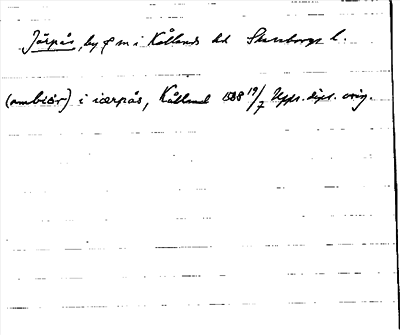 Järpås, by o sn i Kållands hd Skaraborgs l.
(ambiör) i iærpås, Kålland 1588 19/7 Upps. dipl. orig.